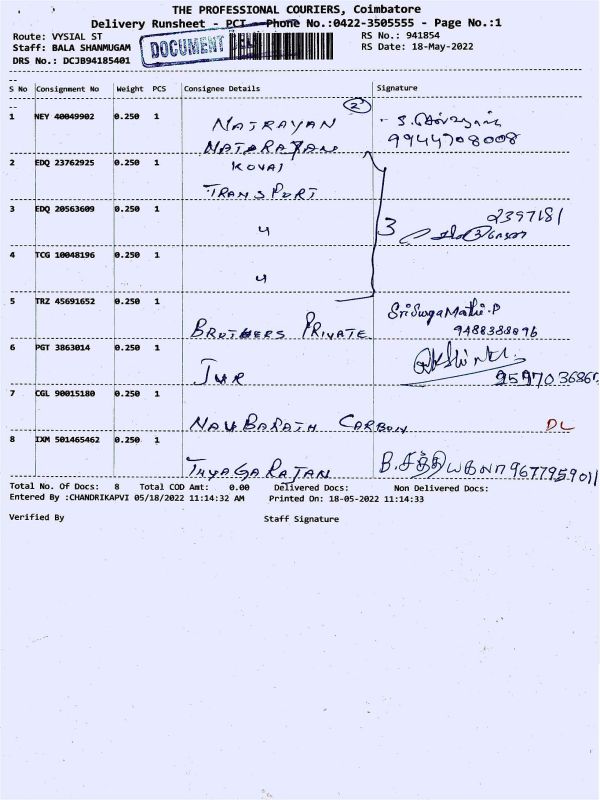 THE PROFESSIONAL COURIERS, Coimbatore
Delivery Runsheet - PCT - Phone No.:0422-3505555 - Page No.:1
Route: VYSIAL ST
RS No.: 941854
Staff: BALA SHANMUGAM
DOCUMENT
RS Date: 18-May-2022
DRS No.: DCJB94185401
S No Consignment No Weight PCS Consignee Details Signature
2
1 NEY 40049902 0.250 1 NATRAYAN
9944708008
2 EDQ 23762925 0.250 1 KOVAI
TRANSPORT
3 EDQ 20563609 0.250 1 " 3 2397181
4 TCG 10048196 0.250 1 "
5 TRZ 45691652 0.250 1 BROTHERS PRIVATE SriSugaMathi.P
9488388896
6 PGT 3863014 0.250 1 JMR
7 CGL 90015180 0.250 1 NAVBARATH CARBON DL
8 IXM 501465462 0.250 1 THYAGARAJAN B.சத்தியகலா 9677959011
Total No. Of Docs: 8 Total COD Amt: 0.00 Delivered Docs: Non Delivered Docs:
Entered By :CHANDRIKAPVI 05/18/2022 11:14:32 AM Printed On: 18-05-2022 11:14:33
Verified By Staff Signature